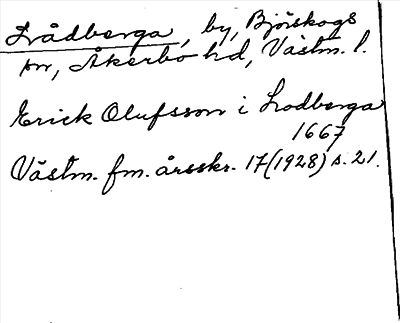 Lrådberga, by, Björskogs
sn, Åkerbo hd, Västm. l.
Erick Olufsson i Lrodberga
1667
Västm. fm. årsskr. 17 (1928) s. 21.